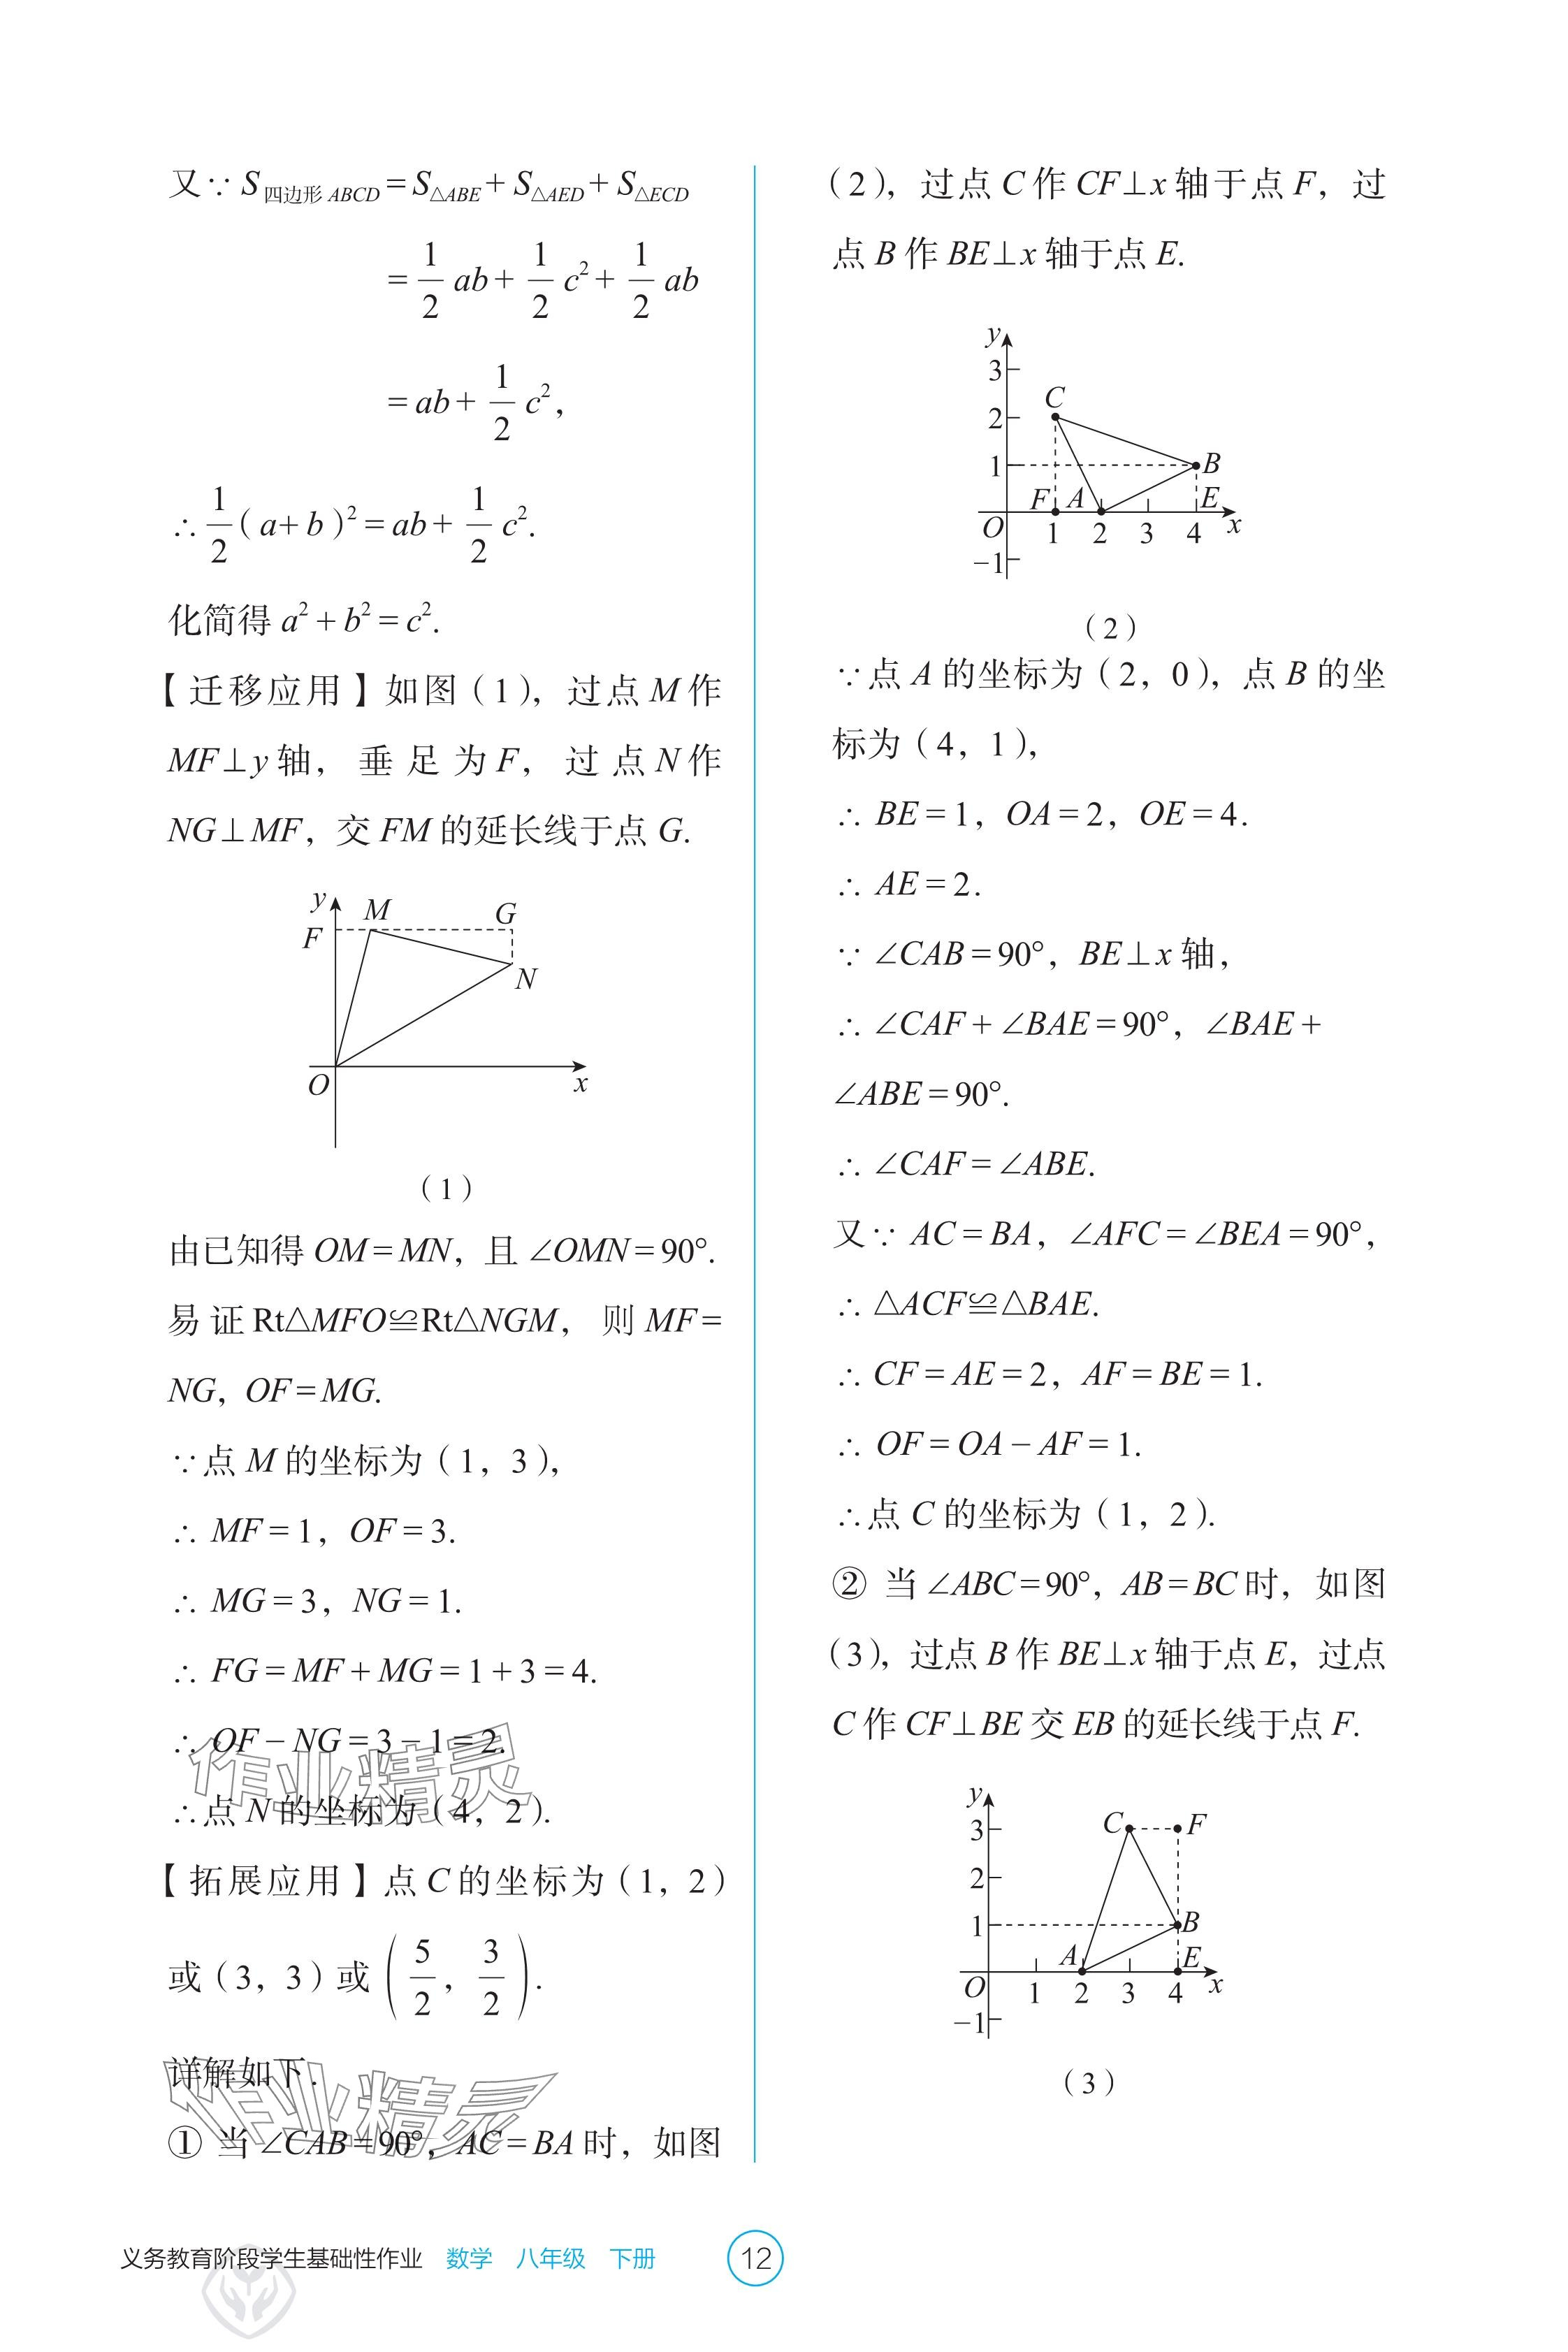 又∵ S四边形ABCD = S△ABE + S△AED + S△ECD
= 1/2 ab + 1/2 c² + 1/2 ab
= ab + 1/2 c²，
∴ 1/2 (a+b)² = ab + 1/2 c².
化简得 a² + b² = c².
【迁移应用】如图（1），过点 M 作
MF⊥y 轴，垂足为 F，过点 N 作
NG⊥MF，交 FM 的延长线于点 G.
y
M
G
F
N
O
x
（1）
由已知得 OM=MN，且 ∠OMN=90°.
易证 Rt△MFO≌Rt△NGM，则 MF=
NG，OF=MG.
∵点 M 的坐标为（1，3），
∴ MF=1，OF=3.
∴ MG=3，NG=1.
∴ FG=MF+MG=1+3=4.
∴ OF-NG=3-1=2.
∴点 N 的坐标为（4，2）.
【拓展应用】点 C 的坐标为（1，2）
或（3，3）或（5/2，3/2）.
详解如下.
① 当 ∠CAB=90°，AC=BA 时，如图
作业精灵
作业精灵
（2），过点 C 作 CF⊥x 轴于点 F，过
点 B 作 BE⊥x 轴于点 E.
y
3
C
2
1
B
F A E
O 1 2 3 4 x
-1
（2）
∵点 A 的坐标为（2，0），点 B 的坐
标为（4，1），
∴ BE=1，OA=2，OE=4.
∴ AE=2.
∵ ∠CAB=90°，BE⊥x 轴，
∴ ∠CAF+∠BAE=90°，∠BAE+
∠ABE=90°.
∴ ∠CAF=∠ABE.
又∵ AC=BA，∠AFC=∠BEA=90°，
∴ △ACF≌△BAE.
∴ CF=AE=2，AF=BE=1.
∴ OF=OA-AF=1.
∴点 C 的坐标为（1，2）.
② 当 ∠ABC=90°，AB=BC 时，如图
（3），过点 B 作 BE⊥x 轴于点 E，过点
C 作 CF⊥BE 交 EB 的延长线于点 F.
y
3
C F
2
1
B
A E
O 1 2 3 4 x
-1
（3）
义务教育阶段学生基础性作业 数学 八年级 下册 12